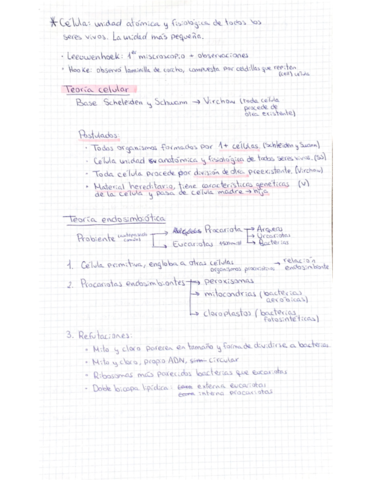 * Célula: unidad atómica y fisiológica de todos los
seres vivos. La unidad más pequeña.
· Leeuwenhoek: 1er microscopio + observaciones
· Hooke: observó laminilla de corcho, compuesta por celdillas que
Teoría celular
Base Scheleiden y Schwann → Virchow (toda célula
procede de
otra existente)
Postulados
· Todos organismos formados por 1+ células
· Célula unidad anatómica y fisiológica de todos seres vivos.
· Toda célula procede por división de otra preexistente. (Virchow)
· Material hereditario tiene características genéticas (V)
de la célula y pasa de célula madre → hija
Teoría endosimbiótica
Procariota → Arqueas
Eucariotas Bacterias
1. Célula primitiva, engloba a otras células → relación
organismos procariotas endosimbionte
2. Procariotas endosimbiontes → peroxisomas
→ mitocondrias (bacterias
aeróbicas)
→ cloroplastos (bacterias
fotosintéticas)
3. Refutaciones:
· Mito y cloro parecen en tamaño y forma de dividirse a bacterias
· Mito y cloro, propio ADN, circular
· Ribosomas más parecidos bacterias que eucariotas
· Doble bicapa lipídica: externa eucariotas
interna procariotas